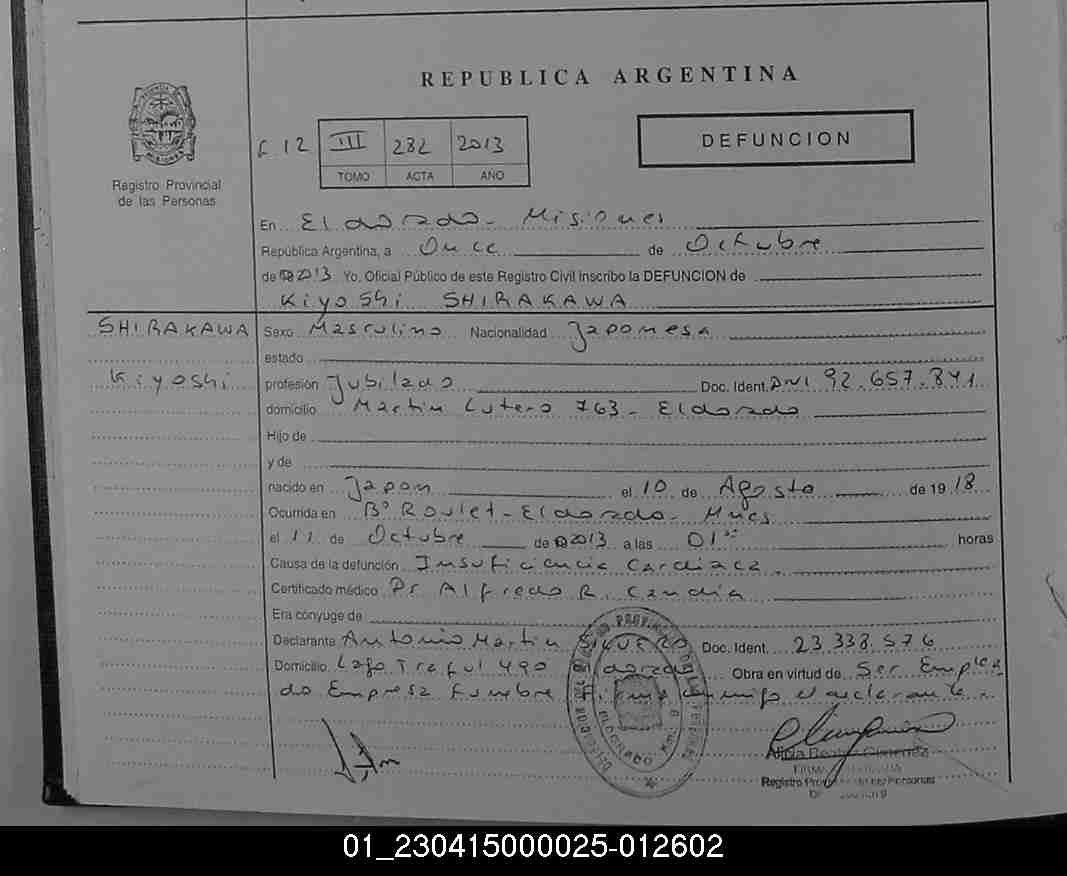 REPUBLICA ARGENTINA
Registro Provincial
de las Personas
F. 12 III 282 2013
TOMO ACTA AÑO
DEFUNCION
En Eldorado - Misiones
República Argentina, a Once de Octubre
de 2013 Yo, Oficial Público de este Registro Civil Inscribo la DEFUNCION de
Kiyoshi SHIRAKAWA
SHIRAKAWA
Kiyoshi
Sexo Masculino Nacionalidad Japonesa
estado
profesión Jubilado Doc. Ident. DNI 92.657.841
domicilio Martin Lutero 763 - Eldorado
Hijo de
y de
nacido en Japon el 10 de Agosto de 1918
Ocurrida en B° Roulet - Eldorado - Mnes
el 11 de Octubre de 2013 a las 01 horas
Causa de la defunción Insuficiencia Cardiaca
Certificado médico Dr Alfredo R. Candia
Era cónyuge de
Declarante Antonio Martin Doc. Ident. 23.338.576
Domicilio Lago Traful 490 Eldorado Obra en virtud de Ser Emplea
do Empresa Funebre Firma conmigo el declarante
ELDORADO
Alicia Beatriz Gimenez
Registro Provincial de las Personas
01_230415000025-012602